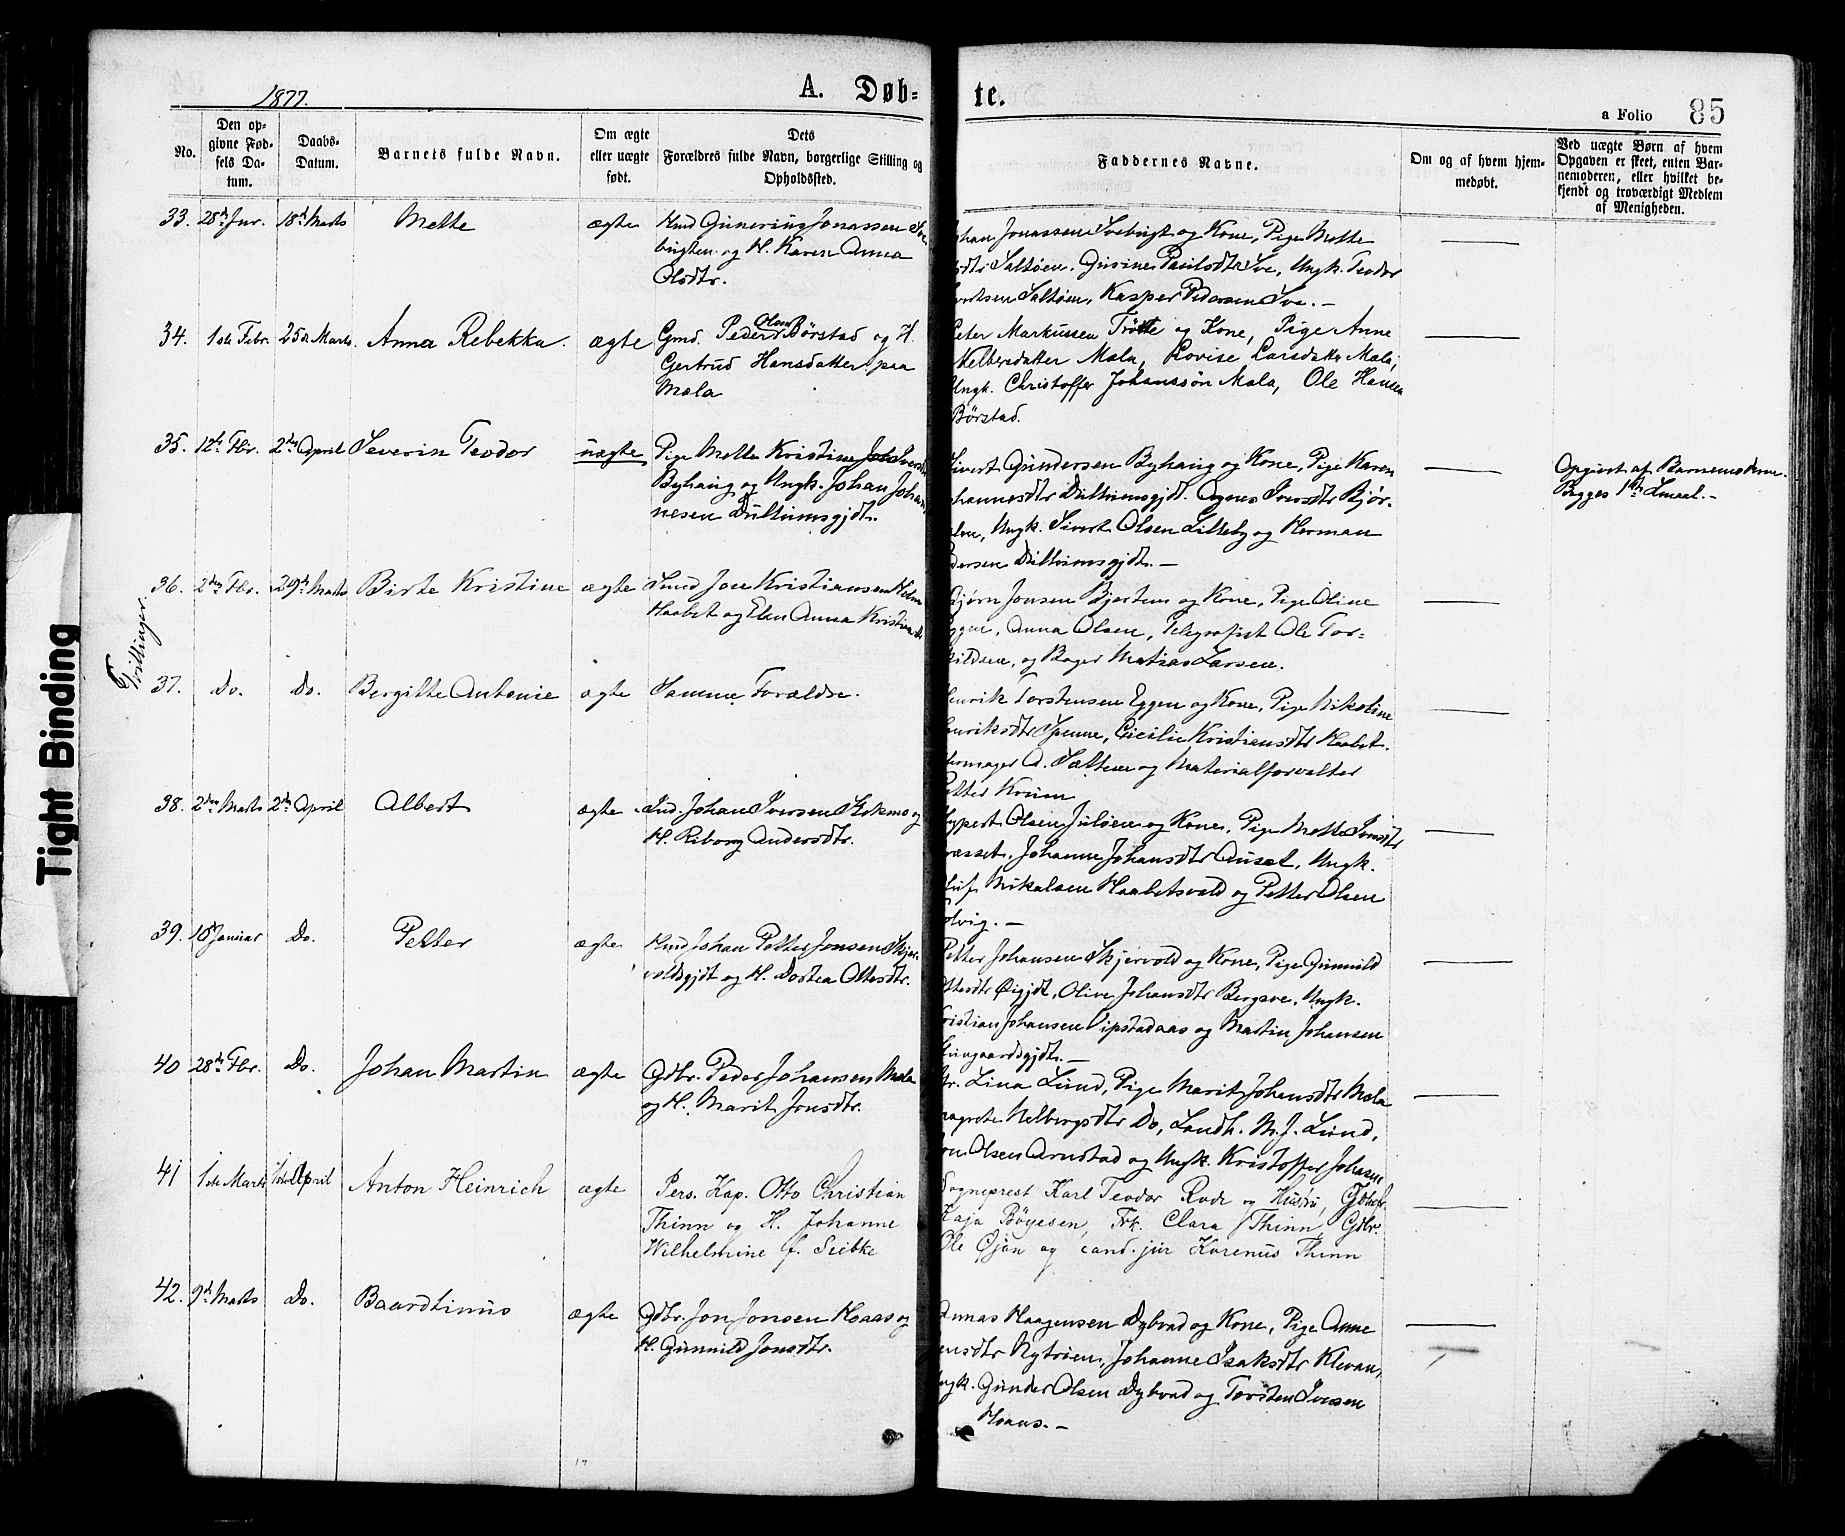 1877.
A. Døb-
te.
a Folio 85
No.
Den op-
givne Fød-
sels Da-
tum.
Daabs-
Datum.
Barnets fulde Navn.
Om ægte
eller uægte
født.
Dets
Forældres fulde Navn, borgerlige Stilling og
Opholdssted.
Faddernes Navne.
Om og af hvem hjem-
medøbt.
Ved uægte Børn af hvem
Opgaven er skeet, enten Bar-
nemoderen, eller hvilket be-
kjendt og troværdigt Medlem
af Menigheden.
33. 28de Jnr. 18de Marts Mette ægte Hmd Gunerius Jonassen
og H. Karen Anna
Olsdtr.
Jonassen Svebugt og Kone, Pige Mette
Saltøien, Paulsdtr Sve, Ungk. Teodor
Saltøien, Kasper Pedersen Sve. —
34. 1ste Febr. 25de Marts. Anna Rebekka. ægte Gmd. Peder Olsen Børstad og H.
Gertrud Hansdatter paa
Mala
Peter Markussen Trøtte og Kone, Pige Anne
Helbersdatter Mala, Lovise Larsdatter Mala,
Ungk. Christoffer Johanssøn Mala, Ole Hansen
Børstad.
35. 12te Fbr. 2den April Severin Teodor uægte Pige Mette Kristine
Byhaug og Ungk. Johan Johan-
nesen Dullumsgjdt.
Sivert Gundersen Byhaug og Kone, Pige Karen
Dullumsgjdt. Agnes Iversdtr Bjør-
Ungk. Sivert Olsen Lilleby og Herman
Dullumsgjdt. —
Opgivet af Barnemoderen.
Begges 1ste Lmaal. —
Trillinger.
36. 2den Fbr. 29de Marts Birte Kristine ægte Smed Jon Kristiansen
Haabet og Elen Anna
Jonsen Bjertem og Kone, Pige Oline
Eggen, Anna Olsen, Telegrafist Ole Tor-
og Bager Matias Larsen.
37. Do. Do. Bergitte Antonie ægte Samme Forældre.
Henrik Torstensen Eggen og Kone, Pige Nikoline
Henriksdtr Spenne, Cicilie Kristiansdtr Haabet.
A. Sælten og Materialforvalter
Petter
38. 2den Marts 2den April Albert ægte Ind. Johan Iversen Stokmo og
H. Riborg Andersdtr.
Olsen Juløien og Kone, Pige Mette Iversdtr
Johanne Johansdtr Auset, Ungk.
Mikalsen Haabetsvald og Petter Olsen
39. 10de Januar Do. Petter ægte Hmd Johan Petter Jonsen Skjer-
voldsgjdt og H. Dortea Ottesdtr.
Petter Johansen Skjervold og Kone, Pige Gunnild
Ottesdtr Øigjdt, Olive Johansdtr Bergsve, Ungk.
Kristian Johansen Vipstadaas og Martin Johansen
40 28de Fbr. Do. Johan Martin ægte Gdbr. Peder Johansen Mala
og H. Marit Jonsdtr.
Lina Lund, Pige Marit Johansdtr Mala
Helbergsdtr Do, Landh. M. J. Lund,
Olsen Arnstad og Ungk. Kristoffer Johansen
41 1ste Marts April Anton Heinrich ægte Pers. Kap. Otto Christian
Thinn og H. Johanne
Wilhelmine f. Seibke
Sogneprest Karl Teodor Rode og Hustru,
Kaja Böyesen, Frk. Clara Thinn, Gdbr.
Ole Gjøn og cand. jur Karenus Thinn
42. 9de Marts Do. Baardtinus ægte Gdbr. Jon Jonsen Moaas og
H. Gunnild Jonsdtr.
Haagensen Dybvad og Kone, Pige Anne
Nytrøen, Johanne Isaksdtr Klevan,
Ungk. Gunder Olsen Dybvad og Torsten Iversen
Moaas. —
Tight Binding